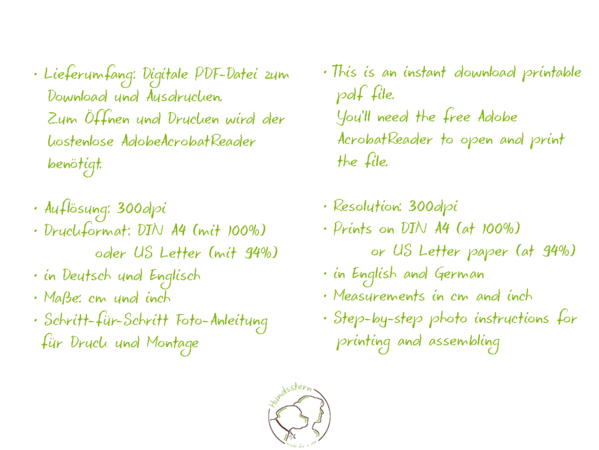 • Lieferumfang: Digitale PDF-Datei zum
Download und Ausdrucken.
Zum Öffnen und Drucken wird der
kostenlose AdobeAcrobatReader
benötigt.
• Auflösung: 300dpi
• Druckformat: DIN A4 (mit 100%)
oder US Letter (mit 94%)
• in Deutsch und Englisch
• Maße: cm und inch
• Schritt-für-Schritt Foto-Anleitung
für Druck und Montage
• This is an instant download printable
pdf file.
You'll need the free Adobe
AcrobatReader to open and print
the file.
• Resolution: 300dpi
• Prints on DIN A4 (at 100%)
or US Letter paper (at 94%)
• in English and German
• Measurements in cm and inch
• Step-by-step photo instructions for
printing and assembling
Hundsstern